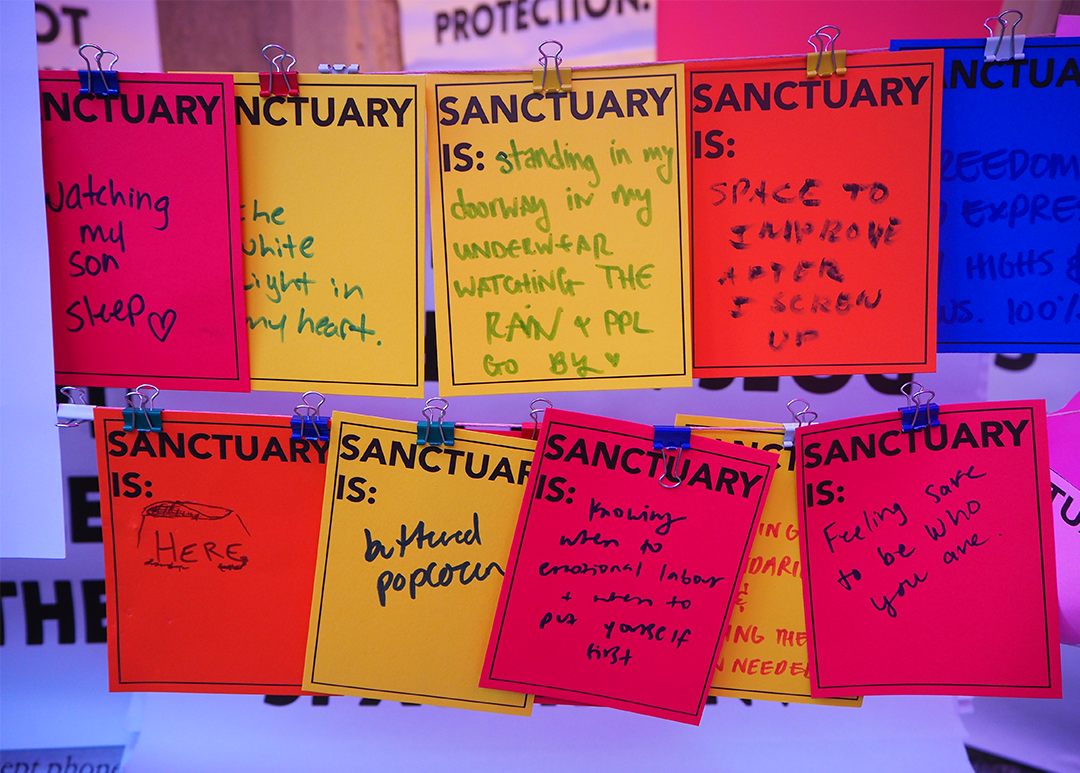 OT
PROTECTION.
NCTUARY
watching
my
son
sleep
NCTUARY
the
white
light in
my heart.
SANCTUARY
IS: standing in my
doorway in my
UNDERWEAR
WATCHING THE
RAIN + PPL
GO BY
SANCTUARY
IS:
SPACE TO
IMPROVE
AFTER
I SCREW
UP
NCTUA
REEDOM
EXPRE
HIGHS &
WS. 100%
SANCTUARY
IS:
HERE
SANCTUAR
IS:
buttered
popcorn
SANCTUARY
IS: Knowing
when to
emotional labour
+ when to
put yourself
first
ANCT
ING
DARI
&
ING THE
N NEEDED
SANCTUARY
IS:
Feeling safe
to be who
you are.
THE
ept phone